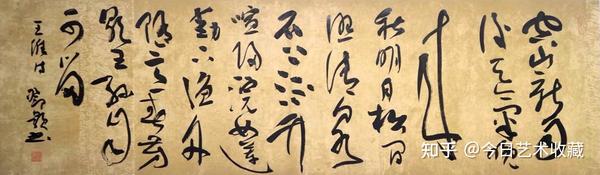 空山新雨
後天氣晚
来
秋明月松间
照清泉
石上流竹
喧归浣女莲
動下渔舟
随意春芳
歇王孙自
可留
王维诗
鄧书
知乎 @今日艺术收藏